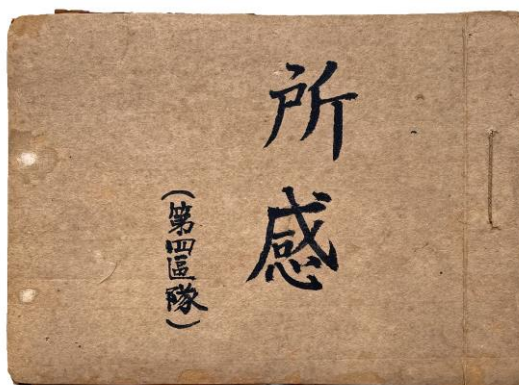 所感
（第四區隊）